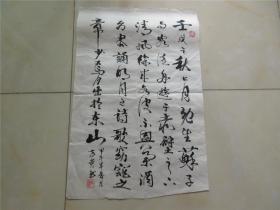 壬戌之秋七月既望蘇子
与客泛舟遊于赤壁之下
清風徐来水波不興舉酒
属客誦明月之詩歌窈窕之
章少焉月出於東山